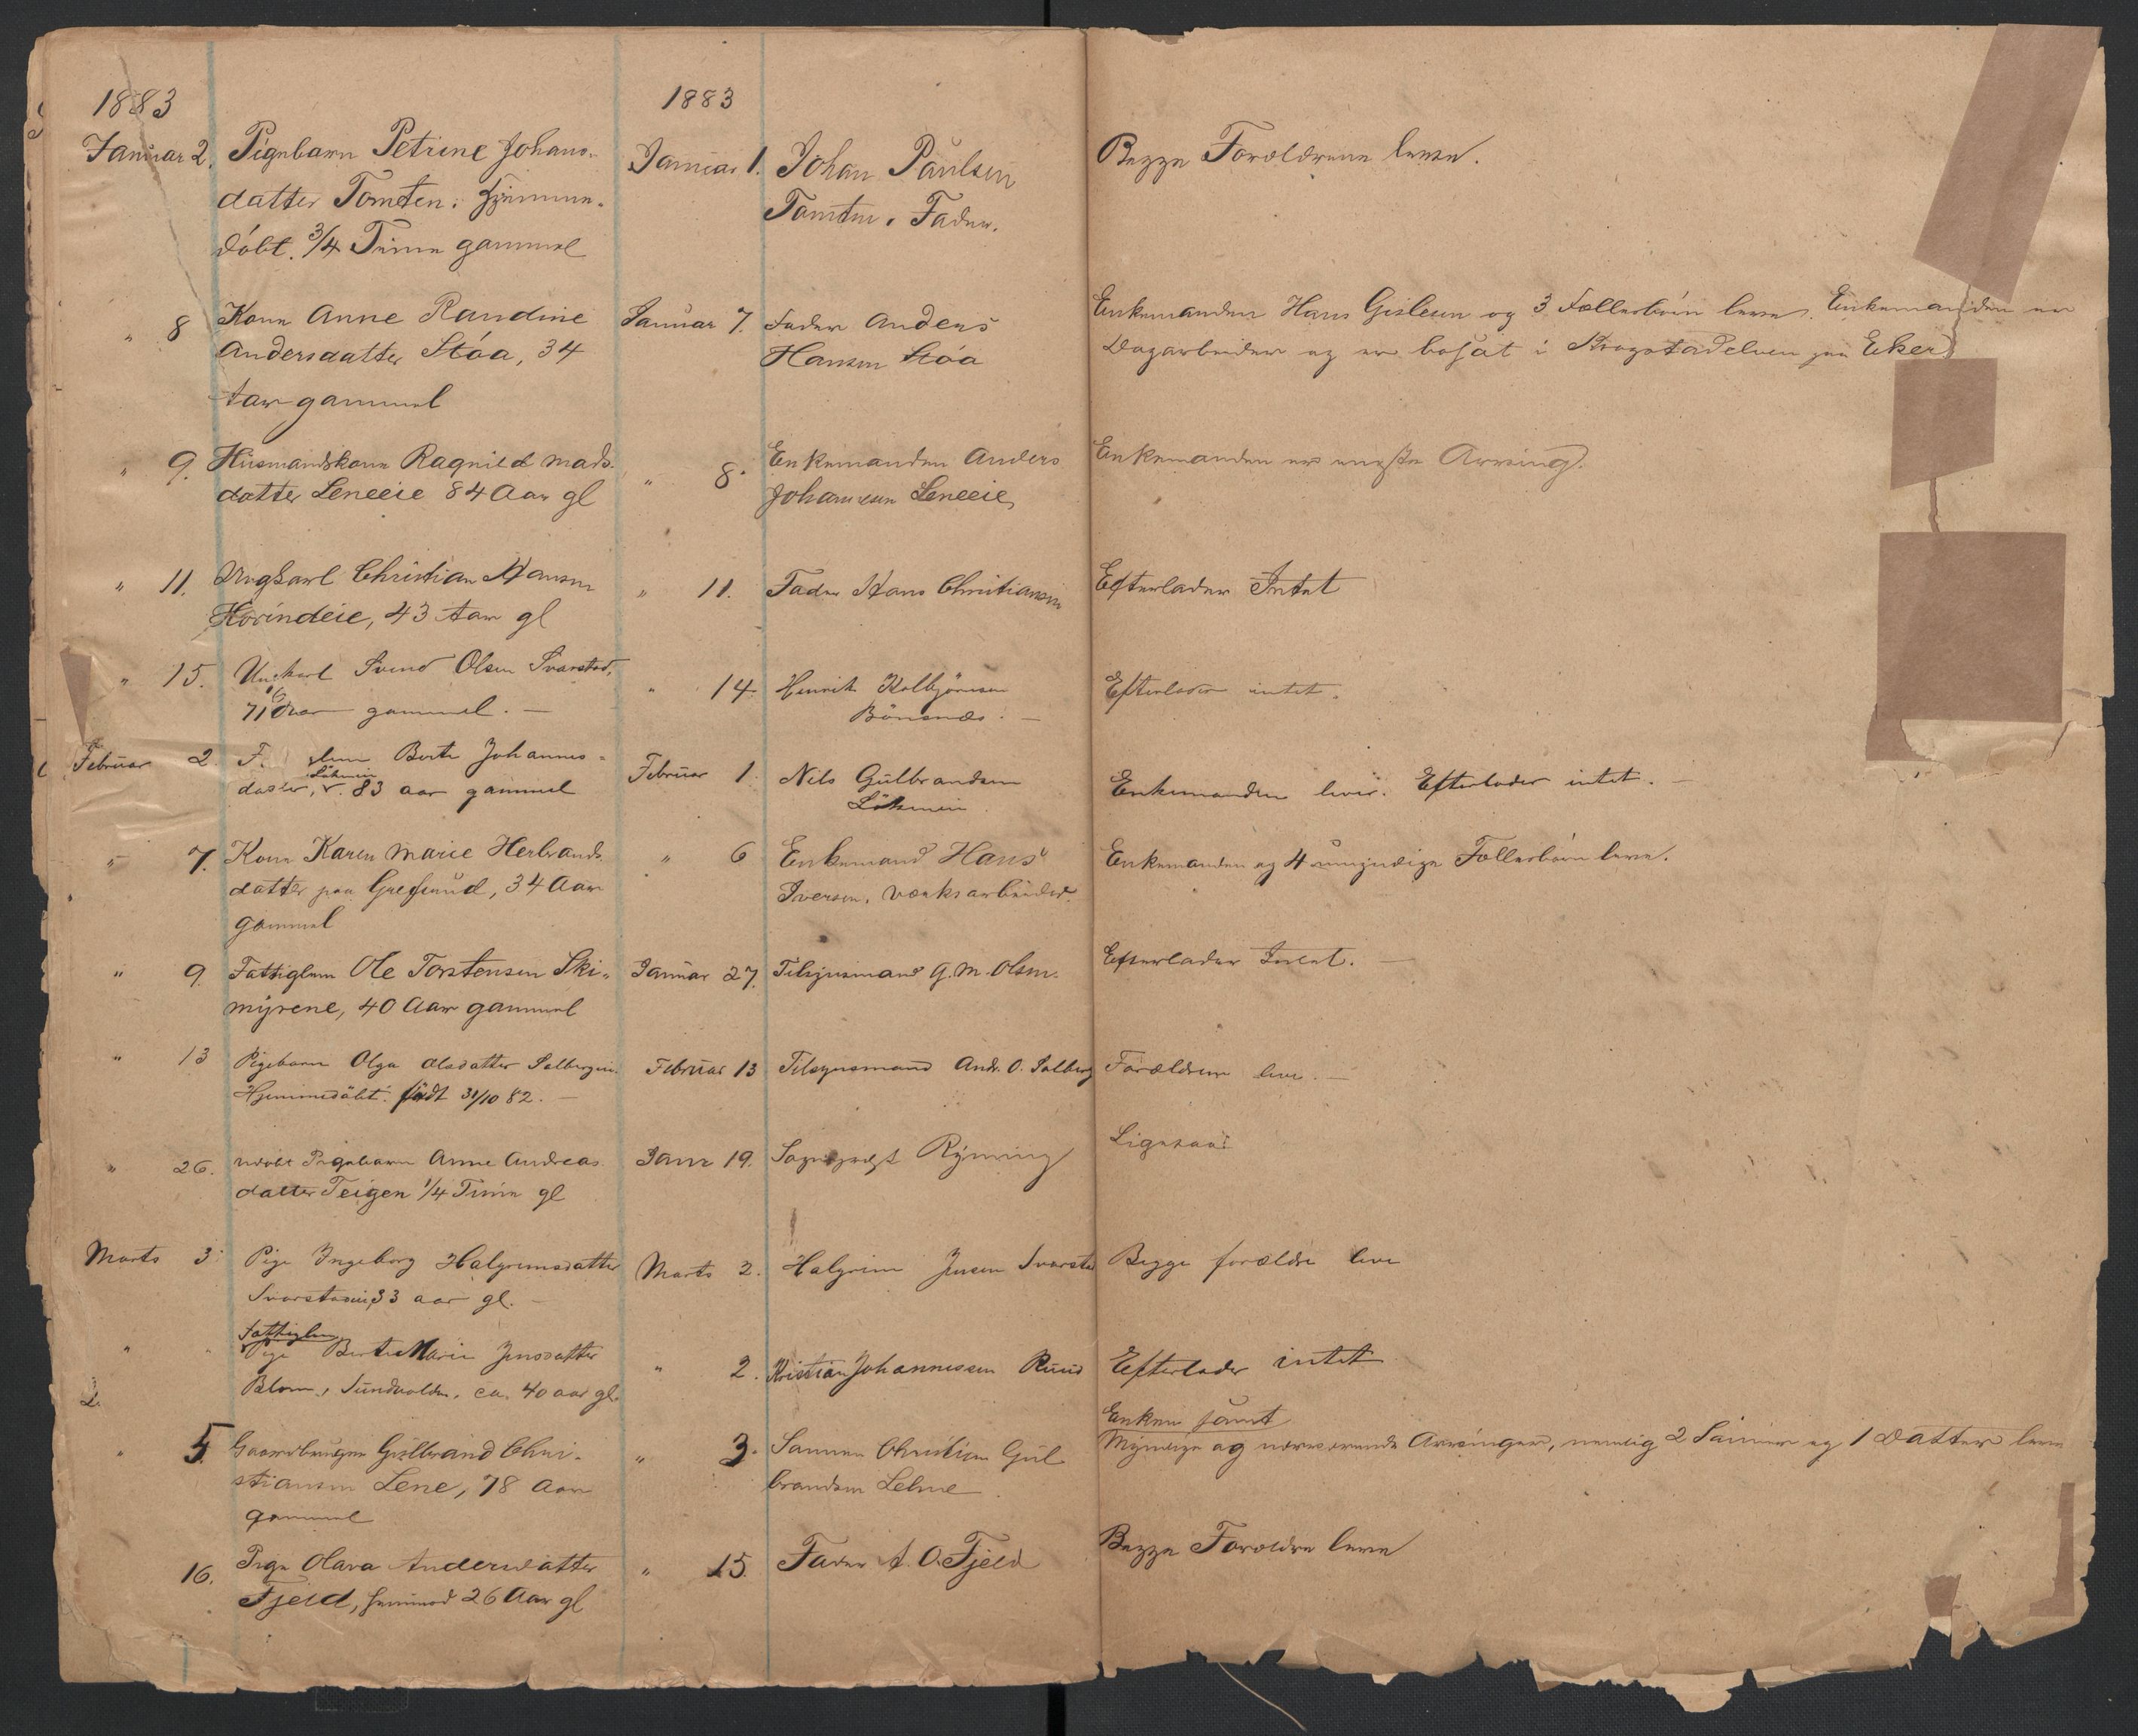 1883
1883
Januar 2. Pigebarn Petrine Johans-
datter Tomten. Hjemme-
döbt. 3/4 Time gammel
Januar 1. Johan Paulsen
Tomten. Fader.
Begge Forældrene leve.
" 8 Kone Anne Randine
Andersdatter Stóa, 34
Aar gammel
Januar 7. Fader Anders
Hansen Stóa
Enkemanden Hans Gislesen og 3 Fællesbörn leve. Enkemanden er
Dagarbeider og er bosat i Krogstadelven paa Eker
" 9. Husmandskone Ragnild Mads-
datter Leneeie 84 Aar gl
" 8. Enkemanden Anders
Johannesen Leneeie
Enkemanden er eneste Arving.
" 11. Ungkarl Christian Hansen
Hörindeie, 43 Aar gl
" 11. Fader Hans Christiansen
Efterlader Intet
" 15. Unkarl Svend Olsen Svarstad,
71 6 aar gammel. —
" 14. Henrik Kolbjörnsen
Bönsnæs. —
Efterlader intet.
Februar 2. Berte Johannes-
datter, Löken v. 83 aar gammel
Februar 1. Nils Gulbrandsen
Enkemanden lever. Efterlader intet. —
" 7. Kone Karen Marie Herbrands-
datter paa Gregsrud, 34 Aar
gammel
" 6 Enkemand Hans
Iversen, værksarbeider.
Enkemanden og 4 umyndige Fællesbörn leve.
" 9. Fattiglem Ole Torstensen Ski-
myrene, 40 Aar gammel
Januar 27. Tilsynsmand G. M. Olsen.
Efterlader Intet. —
" 13 Pigebarn Olga Olsdatter Solbergeie.
Hjemmedöbt. födt 31/10 82. —
Februar 13 Tilsynsmand Andr. O. Solberg
Forældrene leve. —
" 26. udöbt Pigebarn Anne Andreas
datter Teigen 1/4 Time gl
Janr 19. Sognepræst Rynning
Ligesaa
Marts 3. Pige Ingeborg Halgrimsdatter
Svarstadeie, 33 aar gl. —
Marts 2. Halgrim Jensen Svarstad
Begge forældre leve
" " Fattiglem
Pige Berte Marie Jensdatter
Blom, Sundvolden, ca. 40 aar gl.
" 2. Kristian Johannessen Ruud
Efterlader intet
" 5 Gaardbruger Gulbrand Chri-
stiansen Lene, 78 Aar
gammel
" 3. Sönnen Christian Gul
brandsen Lehne
Enken samt
Myndige og nærværende Arvinger, nemlig 2 Sönner og 1 Datter leve
16. Pige Olava Andersdatter
Fjeld, 26 Aar gl
" 15. Fader A. O. Fjeld
Begge Forældre leve